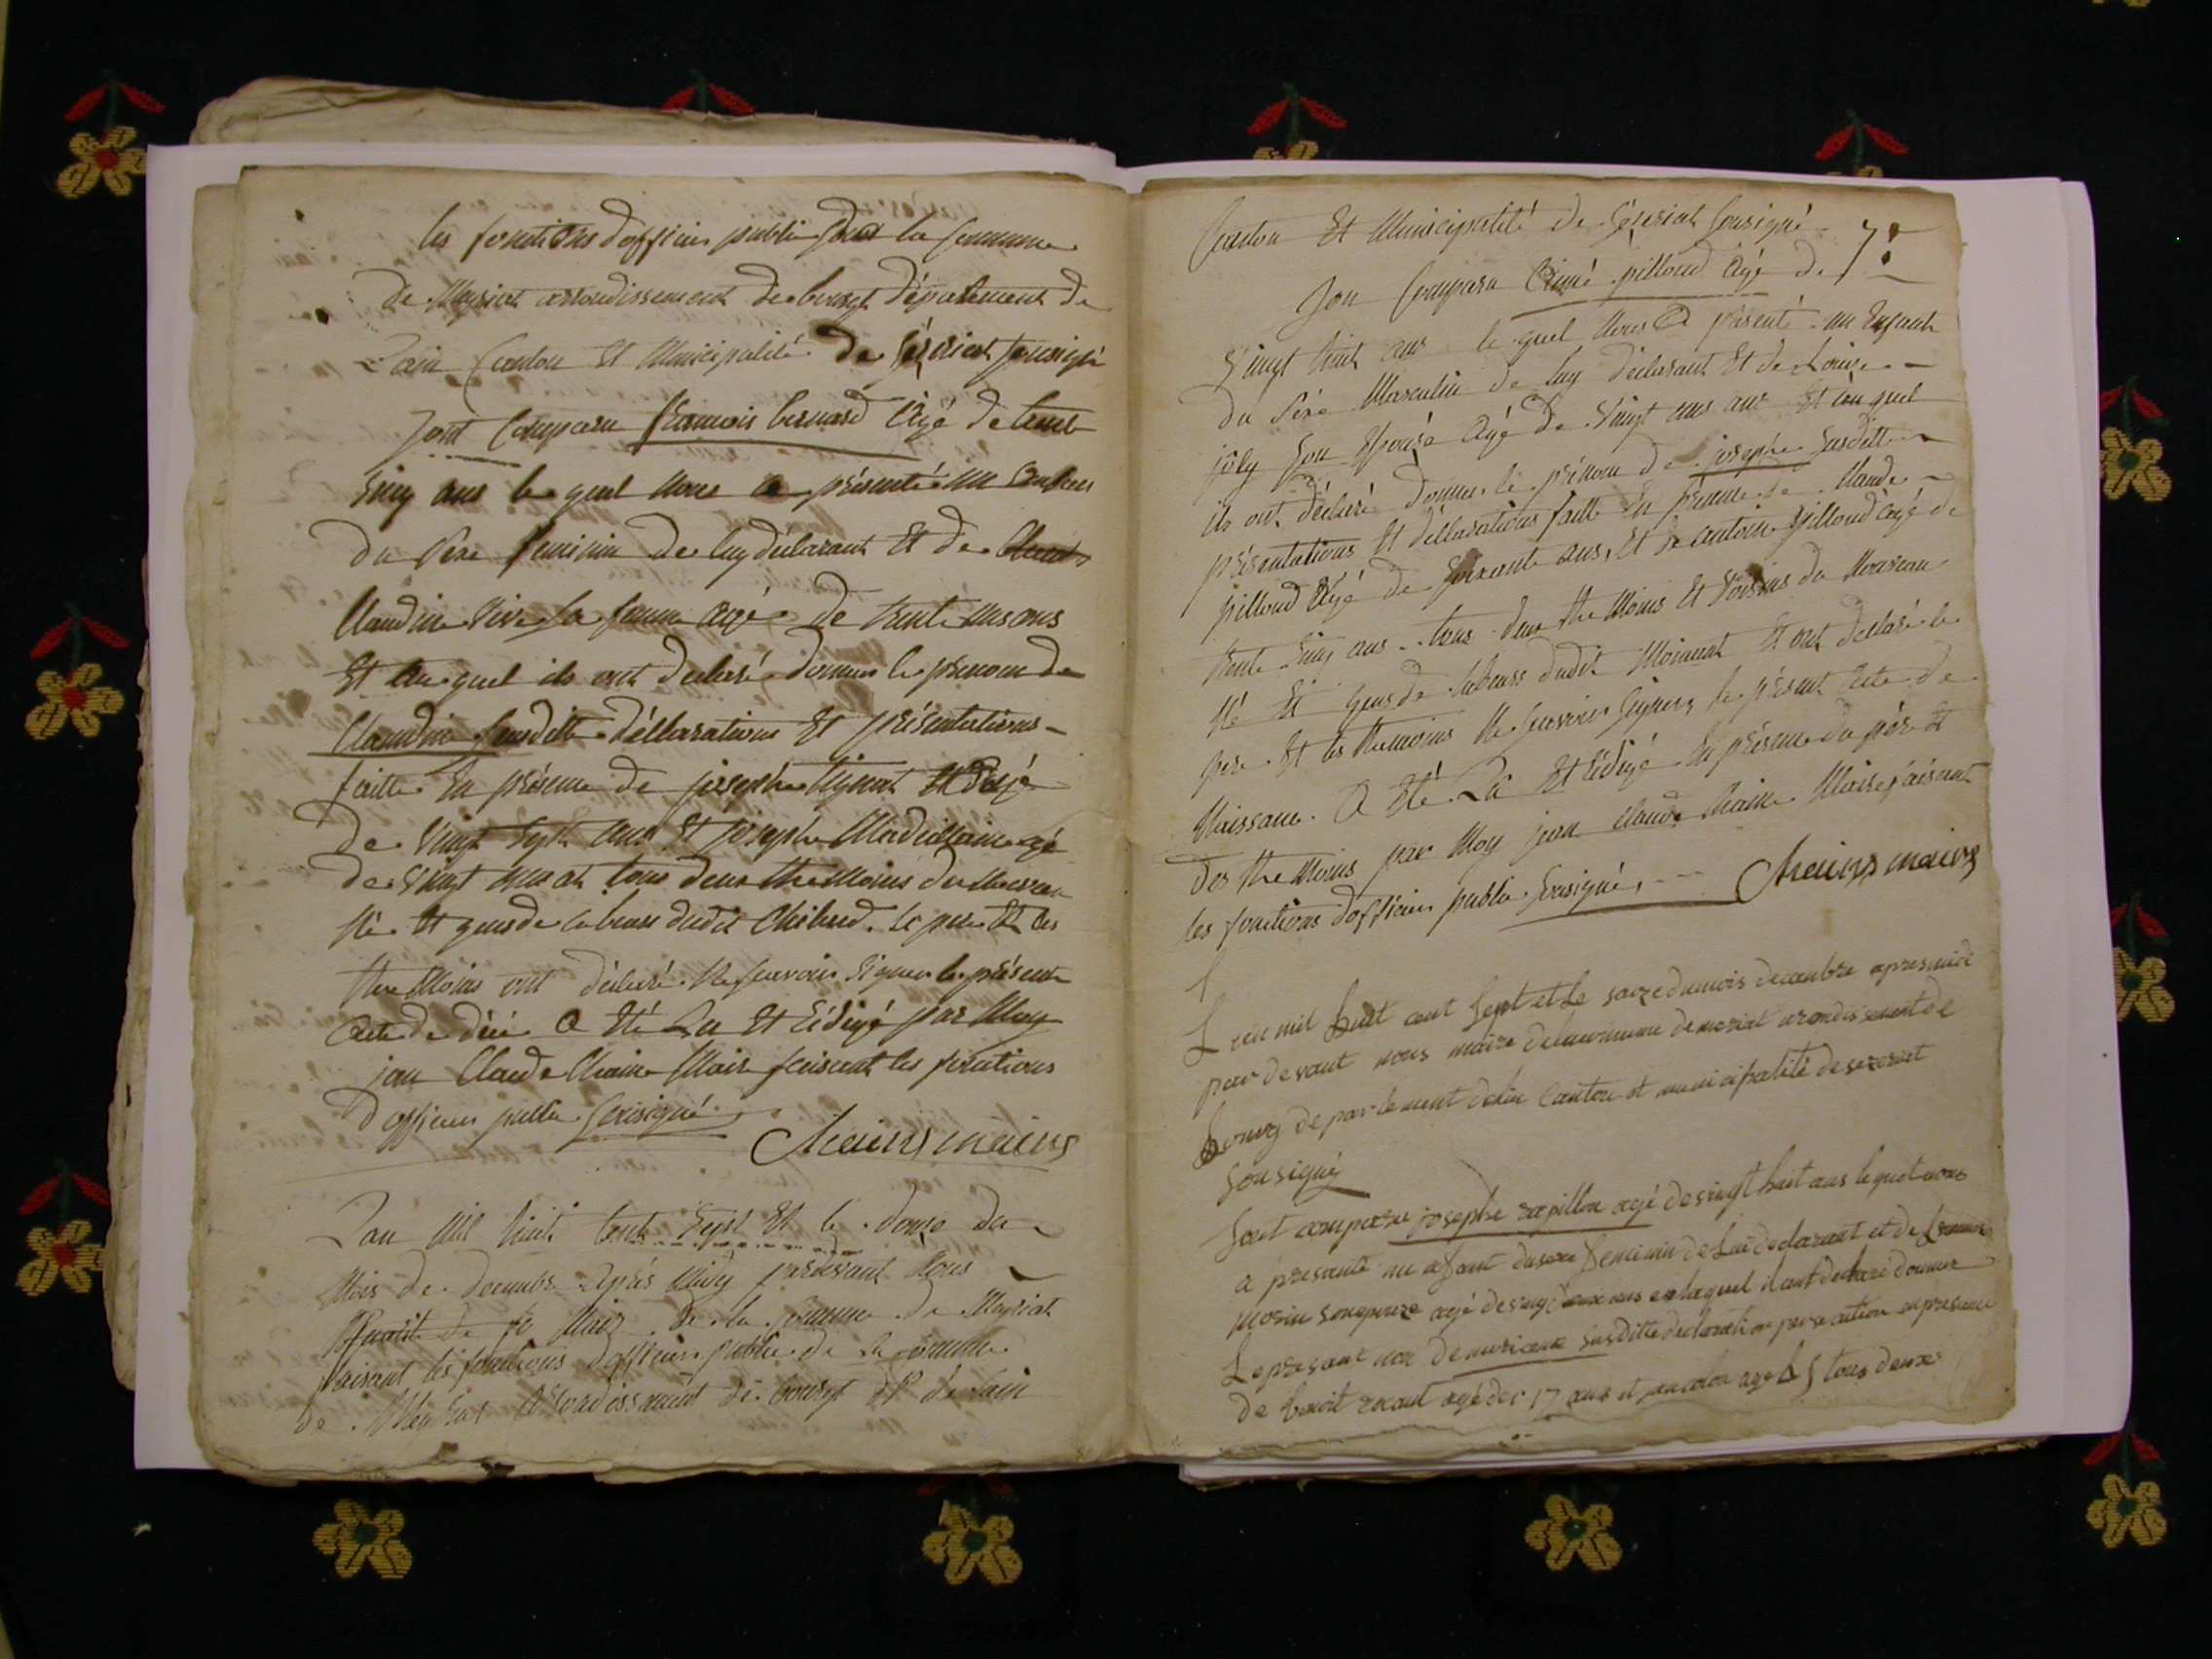 les fonctions dofficier public de la Commune
de Meyriat arrondissement de bourg département de
Lain Canton Et Municipalité de Ceyzeriat sousigné
Sont Comparu francois bernard Agé de trente
cinq ans le quel nous a présenté un Enfant
du sexe feminin de luy déclarant Et de
Claudine sa femme agé de trente ans
Et au quel ils ont déclaré donner le prenom de
Claudine susditte déllarations Et présentations
faitte En présence de joseph Et agé
de vingt sept ans Et joseph agé
de vingt tous deux themoins du
Né Et gens de labeure dudit . le pere Et les
themoins ont déclaré Ne scavoir signer le présent
acte de A Eté Lu Et Rédigé par Moy
jean Claude Chaine Maire faisant les fonctions
dofficier public sousigné
Chaine maire
Lan Mil huit Cent Sept Et le douze du
Mois de decembre Après Midy pardevant Nous
Maire de la commune de Meyriat
faisant les fonctions dofficier public de la commune
de Meyriat Arrondissement de bourg Dt de Lain
Canton Et Municipalité de Ceyzeriat sousigné 7
Son Comparu Aimé pilloud Agé de
vingt huit ans le quel Nous A présenté un Enfant
du sexe Masculin de luy déclarant Et de Louise
joly son Epouse Agé de vingt ans Et au quel
ils ont déclaré donner le prénom de joseph susditte
présentations Et déllarations faitte En présence de Claude
pilloud Agé de soixante ans, Et de antoine pilloud agé de
trente cinq ans tous deux the Moins Et Voisins du Nouveau
Né Et gens de labeure dudit Et ont déclaré le
pere Et les themoins Ne scavoir signer, le présent acte de
Naissance A Eté Lu Et Rédigé En présence du père Et
des the Moins par Moy jean Claude Chaine Maire faisant
les fonctions dofficier public sousigné,
Chaine maire
L an mil huit cent sept et le saize du mois decembre apres midi
par devant nous maire de la commune de meriat arondissement de
Bourg departement delin Canton et municipalité de sezeriat
sousigné
sont comparu josephe rapillon agé de vingt huit ans lequel nous
a presanté un anfant du sexe feminin de lui declarant et de
morin son epouze agé de vingt ans et auquel il ont declaré donner
le presant non de susditte declaration presantation en presance
de benoit agé de 17 ans et agé tous deux